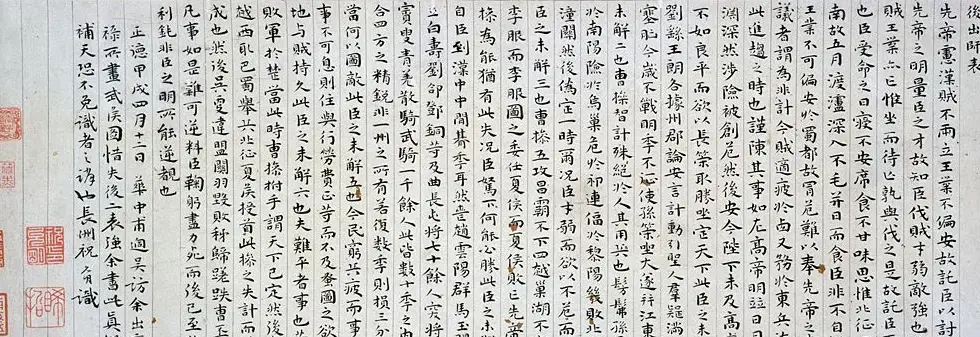 後出師表
先帝慮漢賊不兩立王業不偏安故託臣以討
先帝之明量臣之才故知臣伐賊才弱敵強也
賊王業亦亡惟坐而待亡孰與伐之是故託臣而
也臣受命之日寢不安席食不甘味思惟北征
南故五月渡瀘深入不毛并日而食臣非不自
王業不可偏安於蜀都故冒危難以奉先帝之
議者謂為非計今賊適疲於西又務於東兵法
此進趨之時也謹陳其事如左高帝明並日月
淵深然涉險被創危然後安今陛下未及高帝
不如良平而欲以長策取勝坐定天下此臣之未
劉繇王朗各據州郡論安言計動引聖人羣疑滿
塞胸今歲不戰明年不征使孫策坐大遂并江東
未解二也曹操智計殊絕於人其用兵也髣髴孫
於南陽險於烏巢危於祁連偪於黎陽幾敗北
潼關然後偽定一時爾況臣才弱而欲以不危而
臣之未解三也曹操五攻昌霸不下四越巢湖不
李服而李服圖之委任夏侯而夏侯敗亡先帝
操為能猶有此失況臣駑下何能必勝此臣之未
自臣到漢中中間朞年耳然喪趙雲陽群馬玉閻
立白壽劉郃鄧銅等及曲長屯將七十餘人突將
賨叟青羌散騎武騎一千餘人此皆數十年之內
合四方之精銳非一州之所有若復數年則損三分
當何以圖敵此臣之未解五也今民窮兵疲而事
事不可息則住與行勞費正等而不及蚤圖之欲
地與賊持久此臣之未解六也夫難平者事也昔
敗軍於楚當此時曹操拊手謂天下已定然後
越西取巴蜀舉兵北征夏侯授首此操之失計而
成也然後吳更違盟關羽毀敗秭歸蹉跌曹丕
凡事如是難可逆料臣鞠躬盡力死而後已至
利鈍非臣之明所能逆覩也
正德甲戌四月十三日華中甫過吳坊余出
祿所畫武侯圖惜失後二表強余書此真
補天恐不免識者之誚也長洲祝允明識